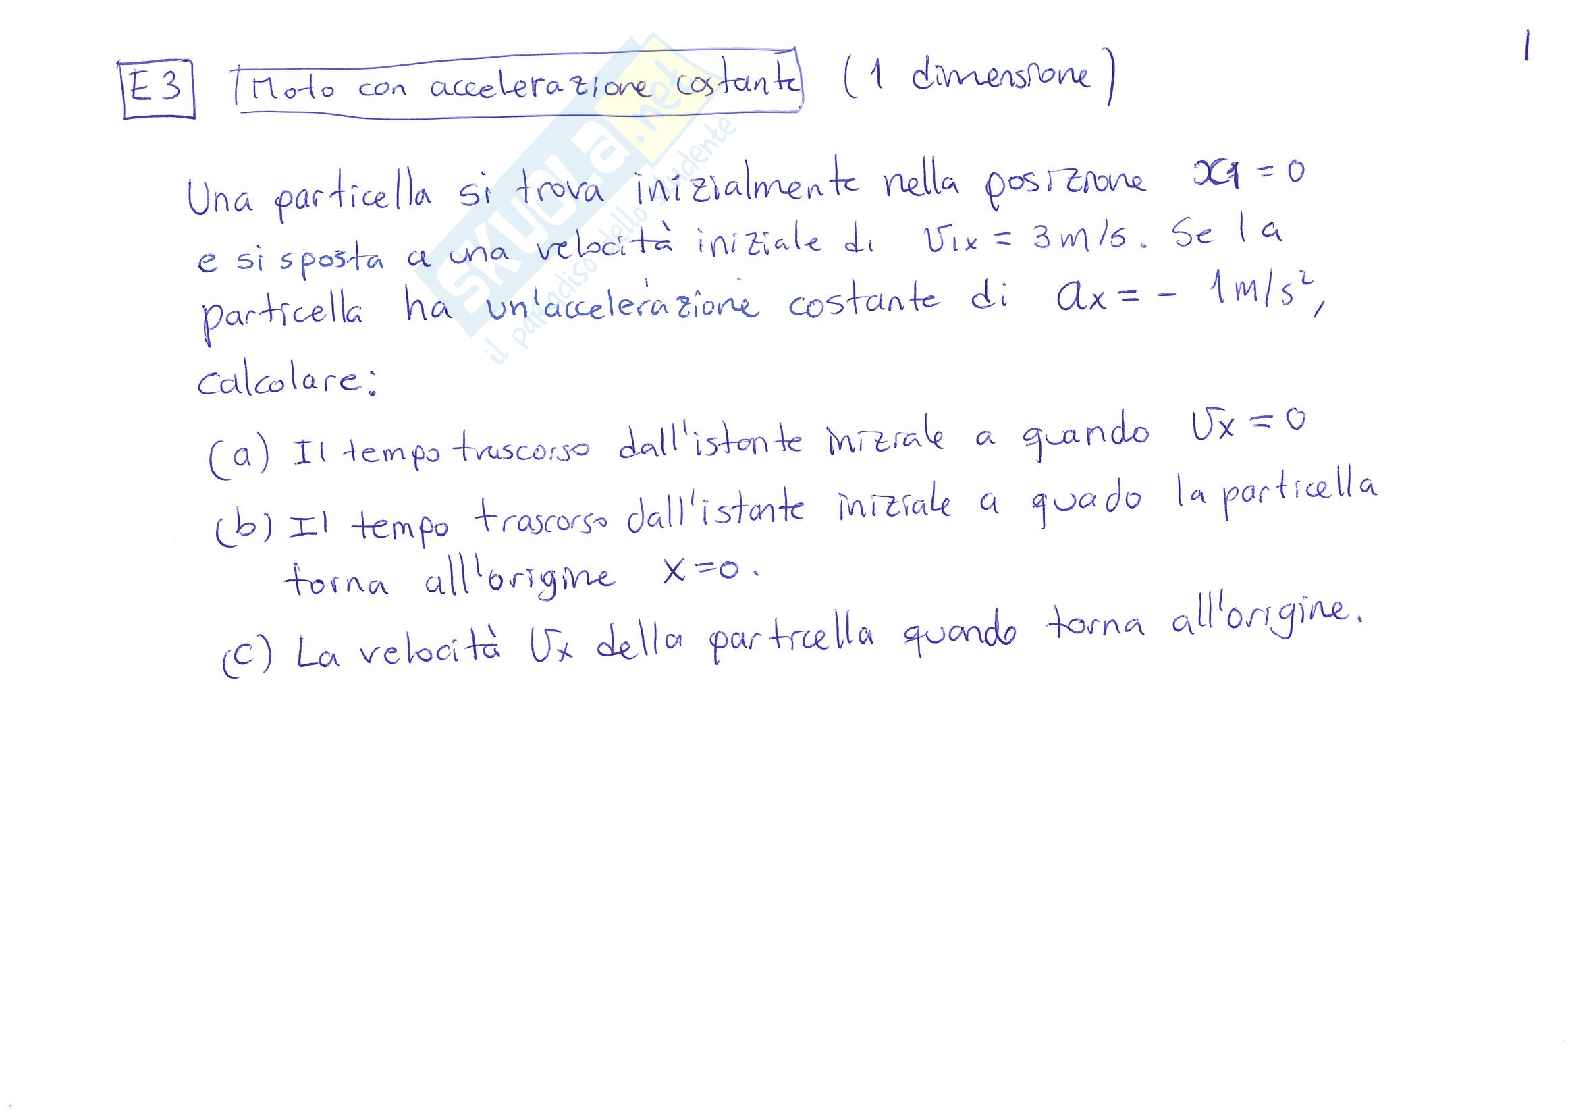 1
E3 Moto con accelerazione costante (1 dimensione)
Una particella si trova inizialmente nella posizione x1 = 0
e si sposta a una velocità iniziale di v1x = 3 m/s. Se la
particella ha un'accelerazione costante di ax = - 1 m/s²,
calcolare:
(a) Il tempo trascorso dall'istante iniziale a quando vx = 0
(b) Il tempo trascorso dall'istante iniziale a quado la particella
torna all'origine x = 0.
(c) La velocità vx della particella quando torna all'origine.
SKUOLA.net
il paradiso dello studente